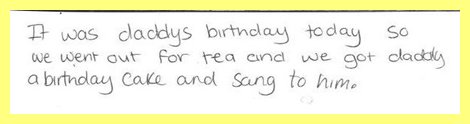 It was daddys birthday today so
we went out for tea and we got daddy
a birthday cake and sang to him.